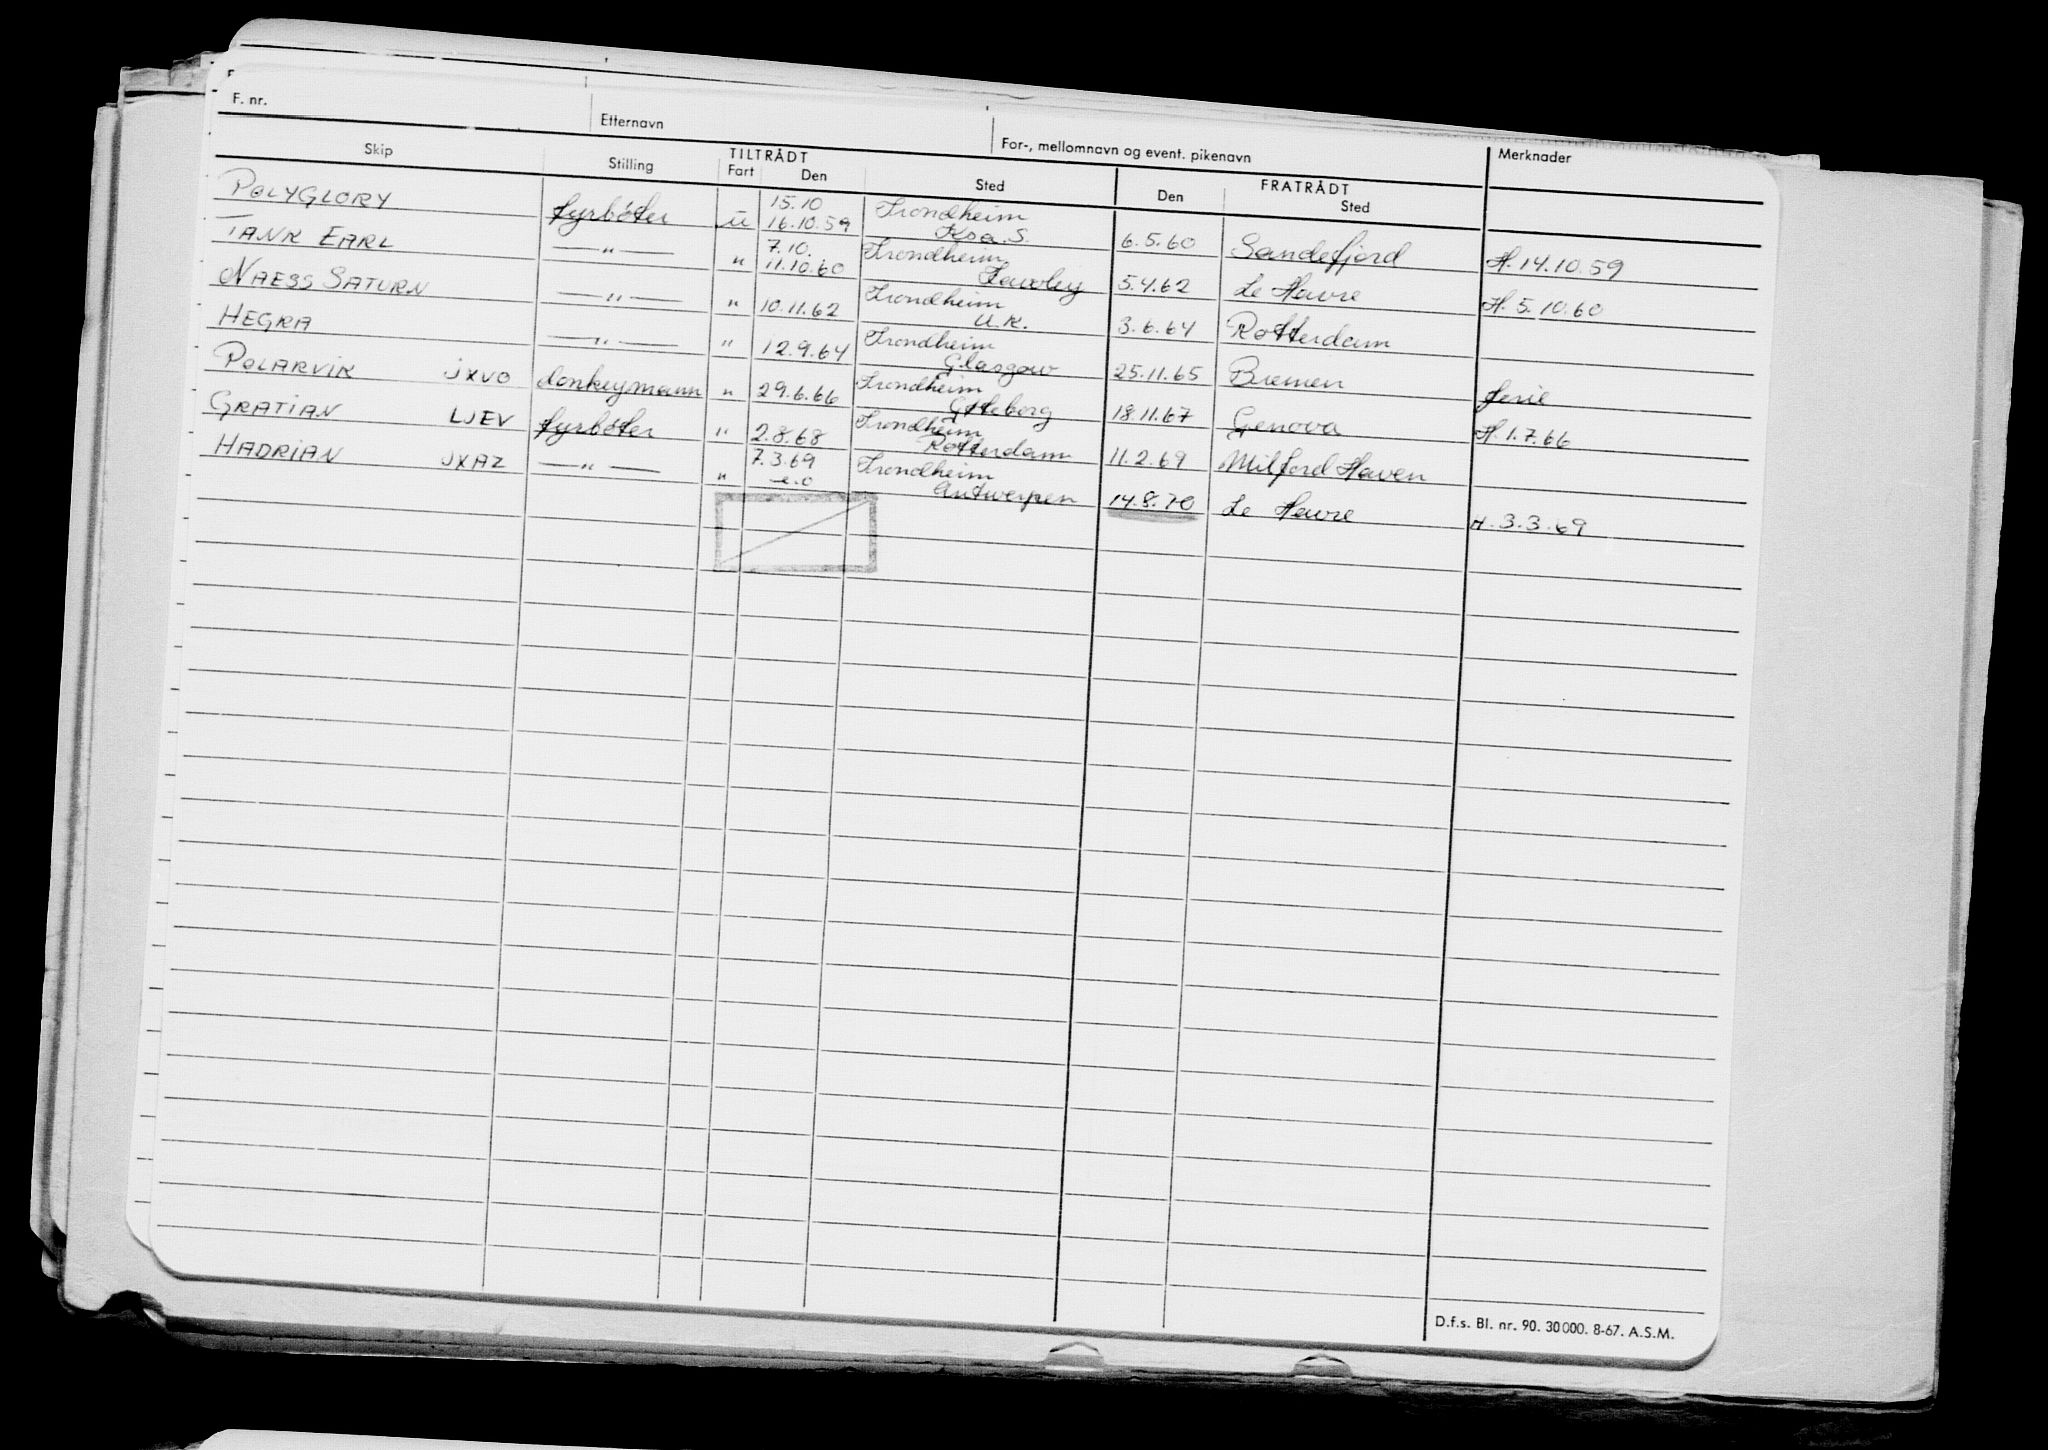 F. nr.
Etternavn
For-, mellomnavn og event. pikenavn
Merknader
Skip
Stilling
TILTRÅDT
Fart
Den
Sted
FRATRÅDT
Den
Sted
POLYGLORY fyrbøter u 15.10 Trondheim
16.10.59 Ksa.S. 6.5.60 Sandefjord H.14.10.59
TANK EARL —"— " 7.10. Trondheim
11.10.60 Fawley 5.4.62 Le Havre H. 5.10.60
NAESS SATURN —"— " 10.11.62 Trondheim
U.K. 3.6.64 Rotterdam
HEGRA —"— " 12.9.64 Trondheim
Glasgow 25.11.65 Bremen ferie
POLARVIK JXVO donkeymann " 29.6.66 Trondheim
Gøteborg 18.11.67 Genova H.1.7.66
GRATIAN LJEV fyrbøter " 2.8.68 Trondheim
Rotterdam 11.2.69 Milford Haven
HADRIAN JXAZ —"— " 7.3.69 Trondheim
e.o Antwerpen 14.8.70 Le Havre H.3.3.69
D.f.s. Bl. nr. 90. 30000. 8-67. A.S.M.